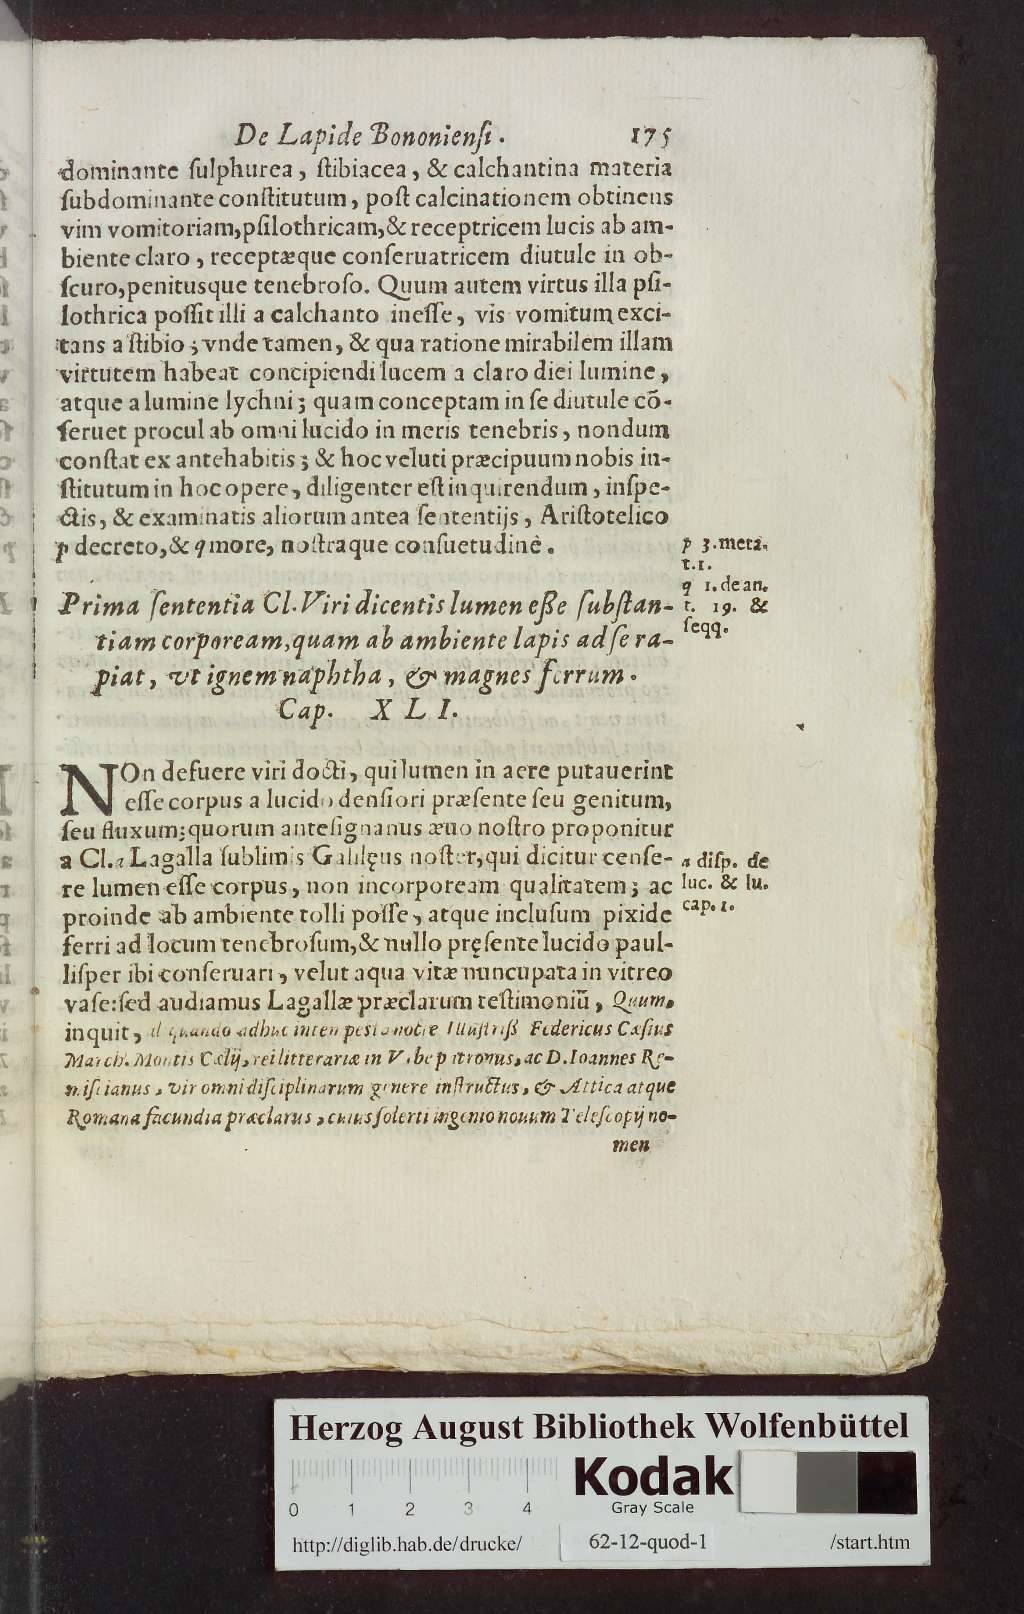 De Lapide Bononienſi. 175
dominante ſulphurea, ſtibiacea, & calchantina materia
ſubdominante conſtitutum, poſt calcinationem obtinens
vim vomitoriam, pſilothricam, & receptricem lucis ab am-
biente claro, receptæque conſeruatricem diutule in ob-
ſcuro, penitusque tenebroſo. Quum autem virtus illa pſi-
lothrica poſſit illi a calchanto ineſſe, vis vomitum exci-
tans a ſtibio; vnde tamen, & qua ratione mirabilem illam
virtutem habeat concipiendi lucem a claro diei lumine,
atque a lumine lychni; quam conceptam in ſe diutule cō-
ſeruet procul ab omni lucido in meris tenebris, nondum
conſtat ex antehabitis; & hoc veluti præcipuum nobis in-
ſtitutum in hoc opere, diligenter eſt inquirendum, inſpe-
ctis, & examinatis aliorum antea ſententijs, Ariſtotelico
p decreto, & q more, noſtraque conſuetudine.
p 3. meta.
t. 1.
q 1. de an.
t. 19. &
ſeqq.
Prima ſententia Cl. Viri dicentis lumen eße ſubſtan-
tiam corpoream, quam ab ambiente lapis ad ſe ra-
piat, vt ignem naphtha, & magnes ferrum.
Cap. XLI.
NOn defuere viri docti, qui lumen in aere putauerint
eſſe corpus a lucido denſiori præſente ſeu genitum,
ſeu fluxum; quorum anteſignanus æuo noſtro proponitur
a Cl. a Lagalla ſublimis Galilęus noſter, qui dicitur cenſe-
re lumen eſſe corpus, non incorpoream qualitatem; ac
proinde ab ambiente tolli poſſe, atque incluſum pixide
ferri ad locum tenebroſum, & nullo pręſente lucido paul-
liſper ibi conſeruari, velut aqua vitæ nuncupata in vitreo
vaſe: ſed audiamus Lagallæ præclarum teſtimoniū, Quum,
inquit, aliquando adhuc intempeſta nocte Illuſtriß. Federicus Cæſius
March. Montis Cælij, rei litterariæ in Vrbe patronus, ac D. Ioannes Re-
miſcianus, vir omni diſciplinarum genere inſtructus, & Attica atque
Romana facundia præclarus, cuius ſolerti ingenio nouum Teleſcopij no-
men
a diſp. de
luc. & lu.
cap. 1.
Herzog August Bibliothek Wolfenbüttel
Kodak
Gray Scale
0 1 2 3 4
http://diglib.hab.de/drucke/ 62-12-quod-1 /start.htm